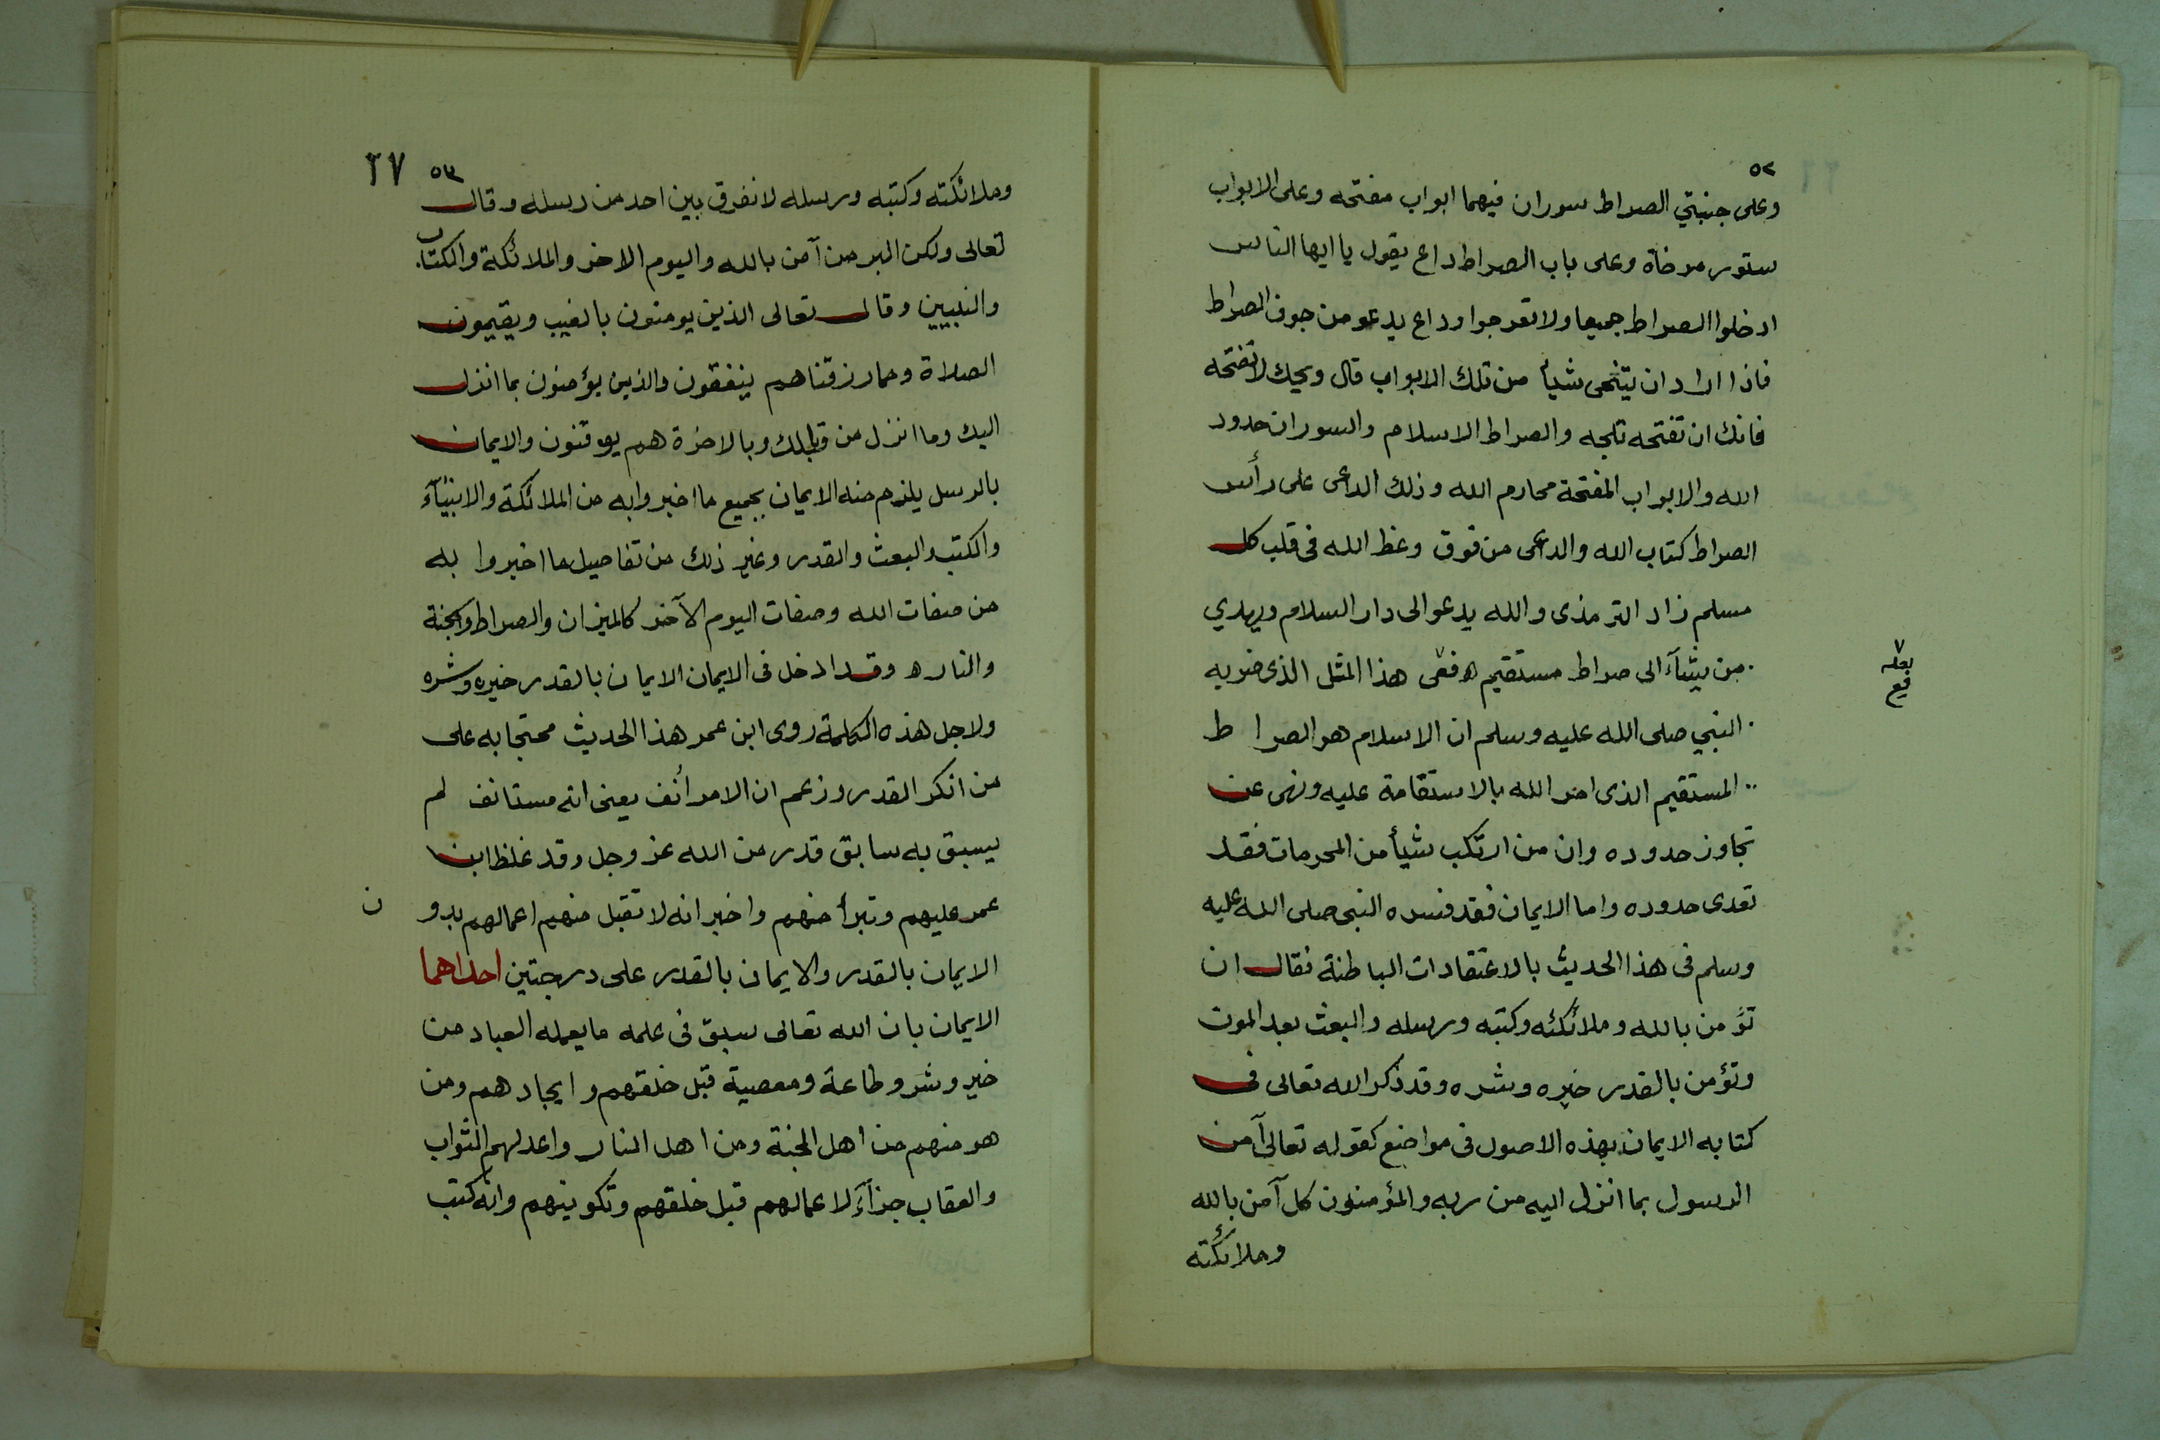 ٥٢
وعلى جنبتي الصراط سوران فيهما ابواب مفتحه وعلى الابواب
ستور مرخاة وعلى باب الصراط داع يقول يا ايها الناس
ادخلوا الصراط جميعا ولا تعرجوا وداع يدعو من جوف الصراط
فاذا اراد ان يتنحى شيأ من تلك الابواب قال ويحك لا تفتحه
فانك ان تفتحه تلجه والصراط الاسلام والسوران حدود
الله والابواب المفتحة محارم الله وذلك الداعى على رأس
الصراط كتاب الله والداعى من فوق وعظ الله فى قلب كل
مسلم زاد الترمذى والله يدعو الى دار السلام ويهدي
من يشآء الى صراط مستقيم ه ففى هذا المثل الذى ضربه
النبي صلى الله عليه وسلم ان الاسلام هو الصراط
المستقيم الذى امر الله بالاستقامة عليه ونهى عن
تجاوز حدوده وان من ارتكب شيأ من المحرمات فقد
تعدى حدوده واما الايمان فقد فسره النبى صلى الله عليه
وسلم فى هذا الحديث بالاعتقادات الباطنة فقال ان
تؤمن بالله وملائكته وكتبه ورسله والبعث بعد الموت
وتؤمن بالقدر خيره وشره وقد ذكر الله تعالى فى
كتابه الايمان بهذه الاصول فى مواضع كقوله تعالى آمن
الرسول بما انزل اليه من ربه والمؤمنون كل آمن بالله
وملائكته
٥٣ ٢٧
وملائكته وكتبه ورسله لا نفرق بين احد من رسله وقال
تعالى ولكن البر من آمن بالله واليوم الاخر والملائكة والكتاب
والنبيين وقال تعالى الذين يومنون بالغيب ويقيمون
الصلاة ومما رزقناهم ينفقون والذين يؤمنون بما انزل
اليك وما انزل من قبلك وبالاخرة هم يوقنون والايمان
بالرسل يلزم منه الايمان بجميع ما اخبروا به من الملائكة والانبيآء
والكتب والبعث والقدر وغير ذلك من تفاصيل ما اخبروا به
من صفات الله وصفات اليوم الآخر كالميزان والصراط والجنة
والنار ه وقد ادخل فى الايمان الايمان بالقدر خيره وشره
ولاجل هذه الكلمة روى ابن عمر هذا الحديث محتجا به على
من انكر القدر وزعم ان الامر أنف يعنى انه مستانف لم
يسبق به سابق قدر من الله عز وجل وقد غلظ ابن
عمر عليهم وتبرأ منهم واخبر انه لا تقبل منهم اعمالهم بدون
الايمان بالقدر والايمان بالقدر على درجتين احداهما
الايمان بان الله تعالى سبق فى علمه ما يعمله العباد من
خير وشر وطاعة ومعصية قبل خلقهم وايجادهم ومن
هو منهم من اهل الجنة ومن اهل النار واعد لهم الثواب
والعقاب جزآء لاعمالهم قبل خلقهم وتكوينهم وانه كتب